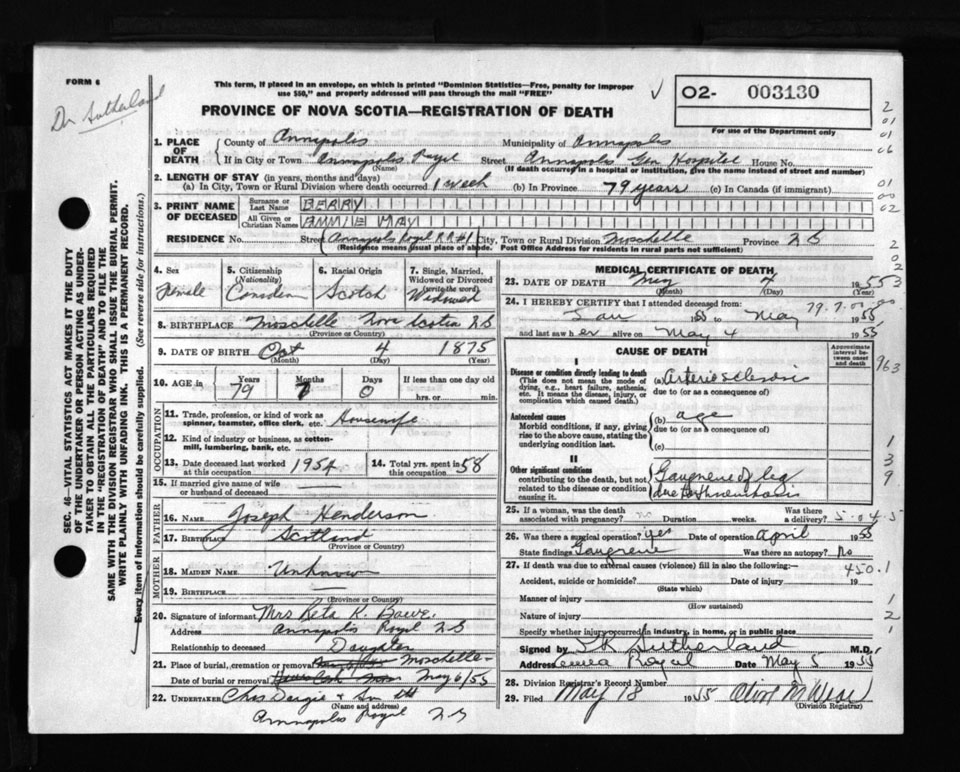 FORM 6
Dr Sutherland
This form, if placed in an envelope, on which is printed "Dominion Statistics—Free, penalty for improper
use $50," and properly addressed will pass through the mail "FREE"
PROVINCE OF NOVA SCOTIA—REGISTRATION OF DEATH
02- 003130
For use of the Department only
SEC. 46—VITAL STATISTICS ACT MAKES IT THE DUTY
OF THE UNDERTAKER OR PERSON ACTING AS UNDER-
TAKER TO OBTAIN ALL THE PARTICULARS REQUIRED
IN THE "REGISTRATION OF DEATH" AND TO FILE THE
SAME WITH THE DIVISION REGISTRAR WHO SHALL ISSUE THE BURIAL PERMIT.
WRITE PLAINLY WITH UNFADING INK. THIS IS A PERMANENT RECORD.
Every item of information should be carefully supplied. (See reverse side for instructions.)
1. PLACE OF DEATH
County of Annapolis Municipality of Annapolis
If in City or Town Annapolis Royal Street Annapolis Gen Hospital House No.
(Name) (If death occurred in a hospital or institution, give the name instead of street and number)
2. LENGTH OF STAY (in years, months and days)
(a) In City, Town or Rural Division where death occurred 1 week (b) In Province 79 years (c) In Canada (if immigrant)
3. PRINT NAME OF DECEASED
Surname or Last Name BERRY
All Given or Christian Names ANNIE MAY
RESIDENCE No. Street Annapolis Royal R.R.#1 City, Town or Rural Division Moschelle Province NS
(Residence means usual place of abode. Post Office Address for residents in rural parts not sufficient)
4. Sex Female
5. Citizenship (Nationality) Canadian
6. Racial Origin Scotch
7. Single, Married, Widowed or Divorced (write the word) Widowed
8. BIRTHPLACE Moschelle Nova Scotia NS
(Province or Country)
9. DATE OF BIRTH Oct 4 1875
(Month) (Day) (Year)
10. AGE in Years 79 Months 7 Days 0 If less than one day old hrs. or min.
OCCUPATION
11. Trade, profession, or kind of work as spinner, teamster, office clerk, etc. Housewife
12. Kind of industry or business, as cotton-mill, lumbering, bank, etc.
13. Date deceased last worked at this occupation 1954
14. Total yrs. spent in this occupation 58
15. If married give name of wife or husband of deceased
FATHER
16. NAME Joseph Henderson
17. BIRTHPLACE Scotland
(Province or Country)
MOTHER
18. MAIDEN NAME Unknown
19. BIRTHPLACE
(Province or Country)
20. Signature of informant Mrs Reta K.
Address Annapolis Royal NS
Relationship to deceased Daughter
21. Place of burial, cremation or removal Moschelle
Date of burial or removal May 6/55
22. UNDERTAKER Chas Dargie & Son
(Name and address)
Annapolis Royal NS
MEDICAL CERTIFICATE OF DEATH
23. DATE OF DEATH May 4 1955
(Month) (Day)
24. I HEREBY CERTIFY that I attended deceased from:
Jan 1955 to May 1955
and last saw her alive on May 4 1955
CAUSE OF DEATH
Approximate interval between onset and death
I
Disease or condition directly leading to death
(This does not mean the mode of dying, e.g., heart failure, asthenia, etc. It means the disease, injury, or complication which caused death.)
(a) Arteriosclerosis
due to (or as a consequence of)
Antecedent causes
Morbid conditions, if any, giving rise to the above cause, stating the underlying condition last.
(b) age
due to (or as a consequence of)
(c)
II
Other significant conditions
contributing to the death, but not related to the disease or condition causing it.
Gangrene of leg
due to thrombosis
25. If a woman, was the death associated with pregnancy? no Duration weeks. Was there a delivery?
26. Was there a surgical operation? yes Date of operation April 1955
State findings Gangrene Was there an autopsy? No
27. If death was due to external causes (violence) fill in also the following:—
Accident, suicide or homicide? Date of injury 19
(State which)
Manner of injury
(How sustained)
Nature of injury
Specify whether injury occurred in industry, in home, or in public place
Signed by Sutherland M.D.
Address Royal Date May 5 1955
28. Division Registrar's Record Number
29. Filed May 18 1955
(Division Registrar)
450.1